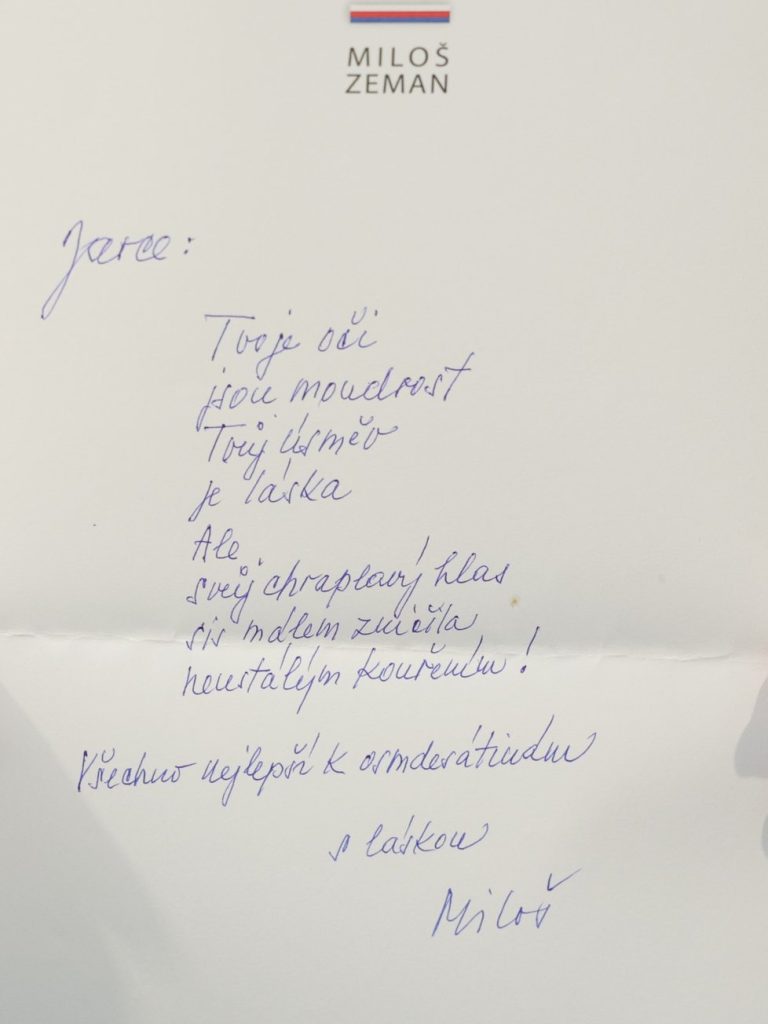 MILOŠ
ZEMAN
Jarce:
Tvoje oči
jsou moudrost
Tvůj úsměv
je láska
Ale
svůj chraplavý hlas
sis málem zničila
neustálým kouřením!
Všechno nejlepší k osmdesátinám
s láskou
Miloš